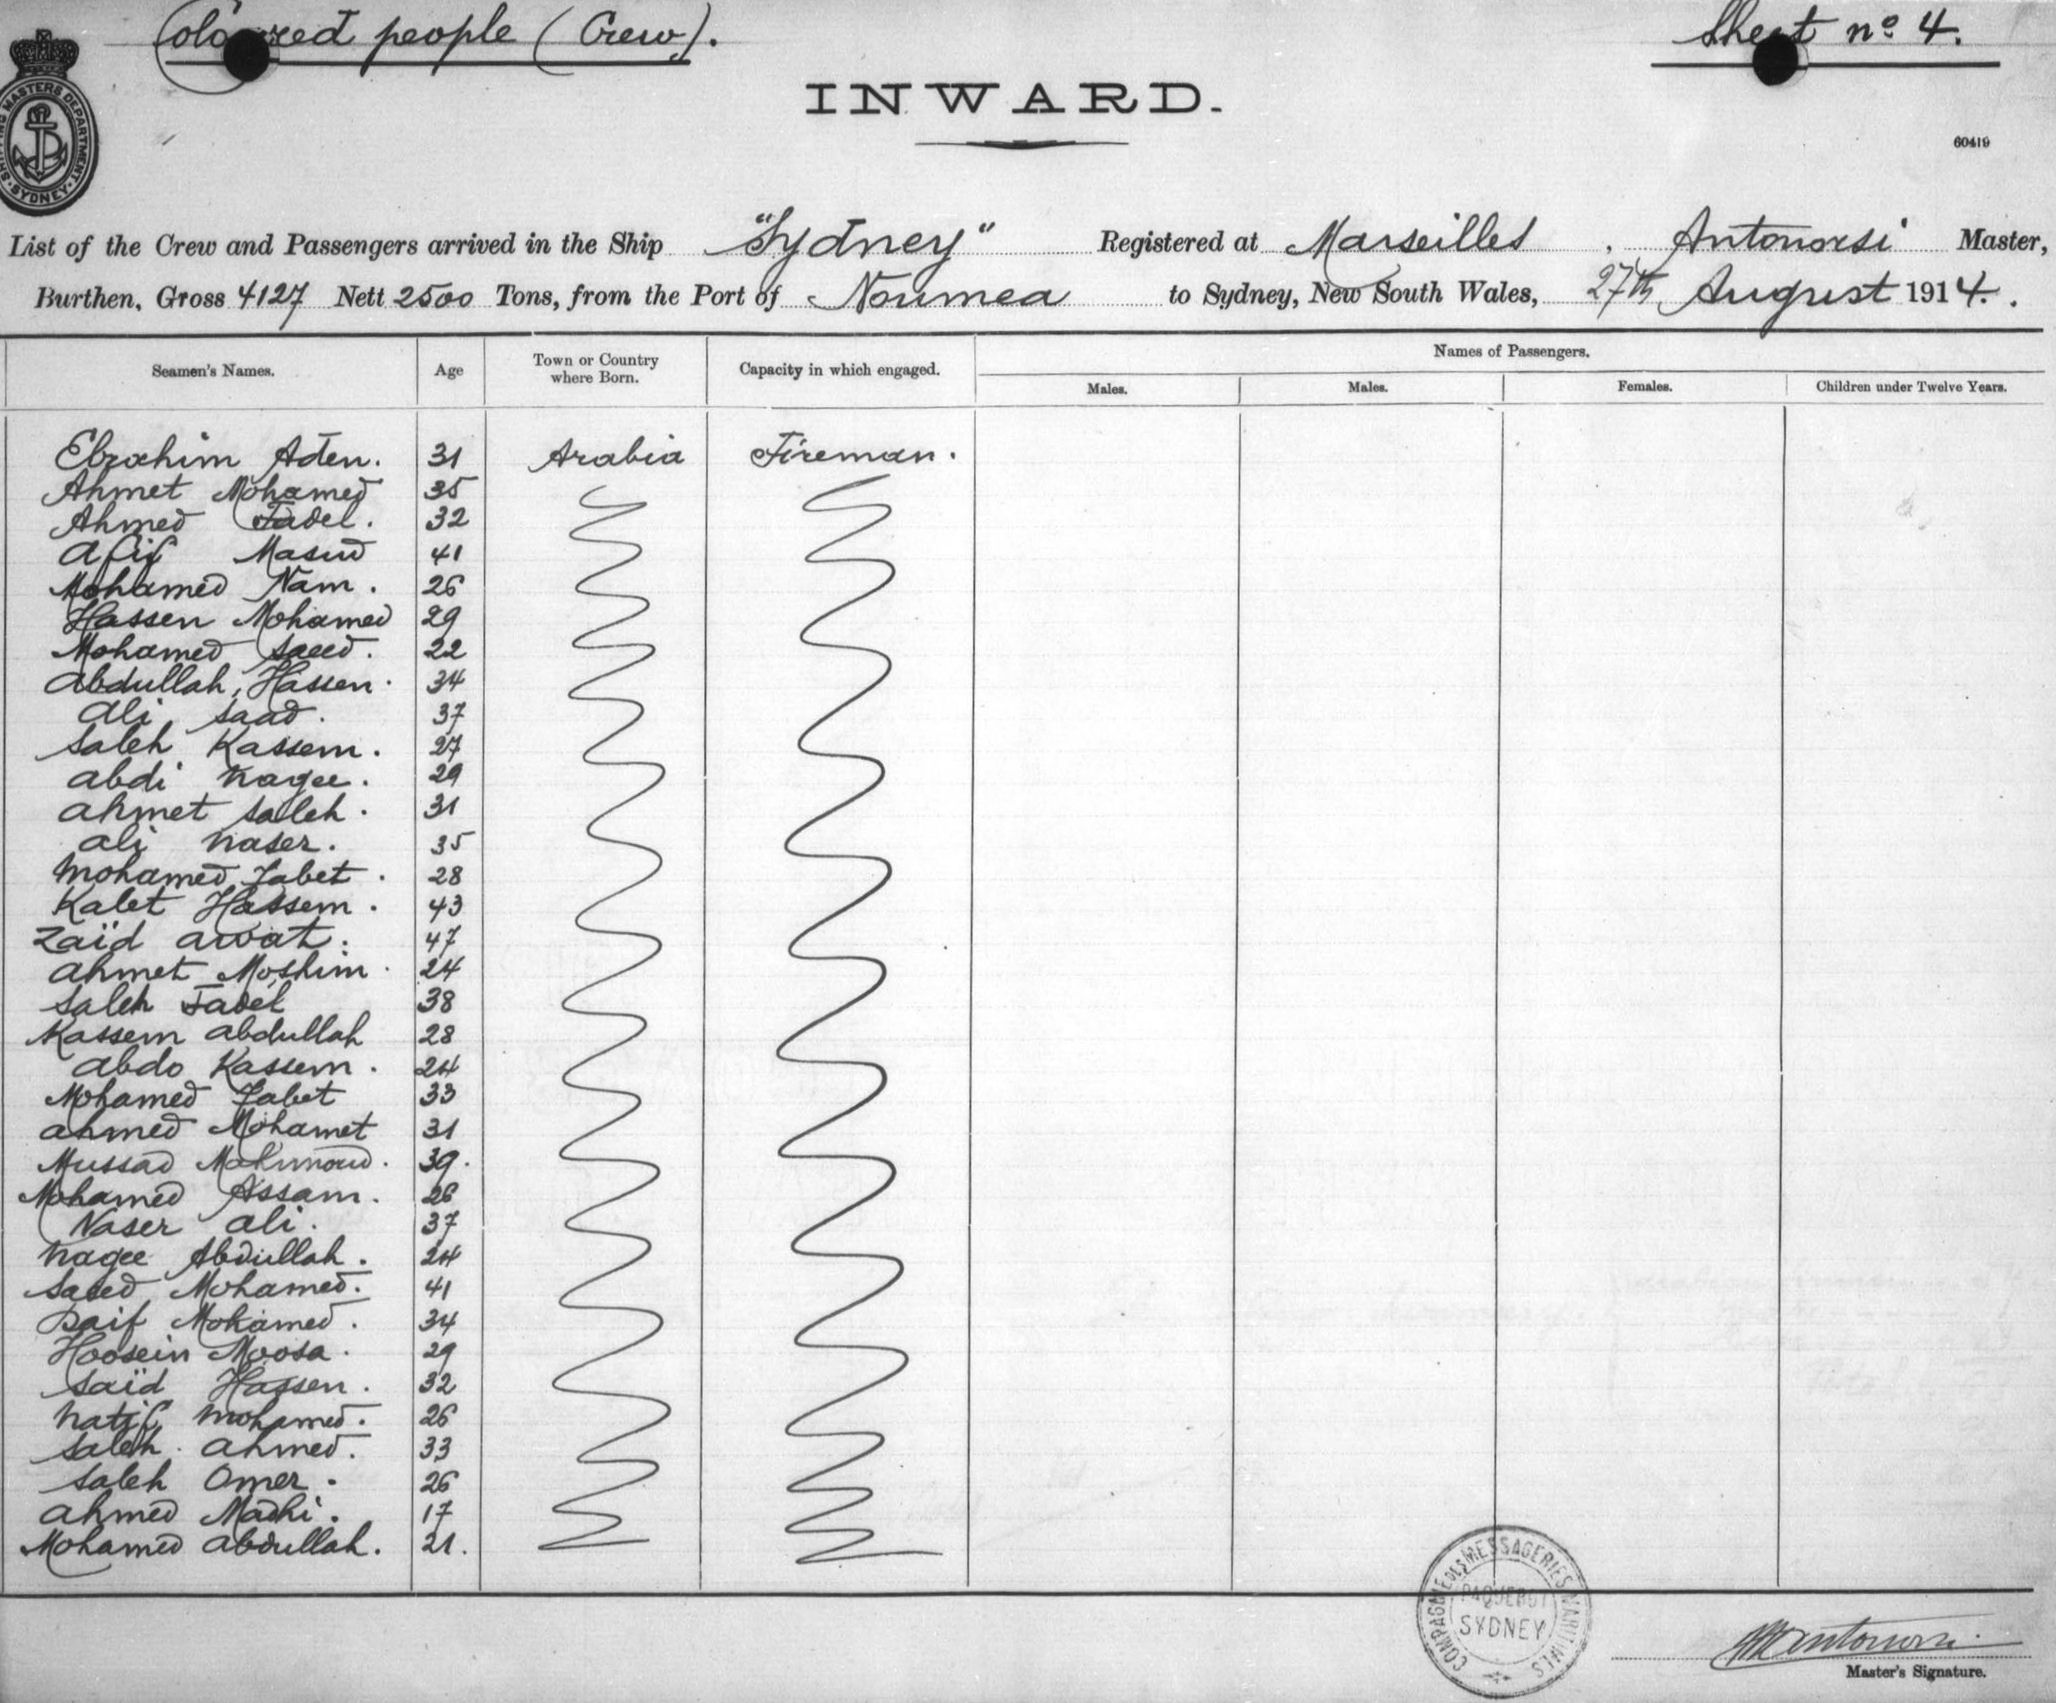 Coloured people (Crew).
Sheet nº 4.
SHIPPING MASTERS DEPARTMENT
SYDNEY
INWARD.
60419
List of the Crew and Passengers arrived in the Ship "Sydney" Registered at Marseilles. Antonorsi Master,
Burthen, Gross 4127 Nett 2500 Tons, from the Port of Noumea to Sydney, New South Wales, 27th August 1914.
Seamen's Names. Age Town or Country where Born. Capacity in which engaged. Names of Passengers.
Males. Males. Females. Children under Twelve Years.
Ebrahim Aden. 31 Arabia Fireman.
Ahmet Mohamed 35
Ahmed Fadel. 32
Afif Masud 41
Mohamed Nam. 26
Hassen Mohamed 29
Mohamed Saeed. 22
Abdullah Hassen. 34
Ali Saad. 37
Saleh Kassem. 27
Abdi Nagee. 29
Ahmet Saleh. 31
Ali Naser. 35
Mohamed Jabet. 28
Kalet Hassem. 43
Zaïd Awat. 47
Ahmet Moshim. 24
Saleh Fadel 38
Kassem Abdullah 28
Abdo Kassem. 24
Mohamed Jabet 33
Ahmed Mohamet 31
Mussad Mahmoud. 39.
Mohamed Assam. 26
Naser Ali. 37
Nagee Abdullah. 24
Saeed Mohamed. 41
Daif Mohamed. 34
Hoosein Moosa. 29
Saïd Hassen. 32
Natif Mohamed. 26
Saleh Ahmed. 33
Saleh Omer. 26
Ahmed Madhi. 17
Mohamed Abdullah. 21.
COMPAGNIE DES MESSAGERIES MARITIMES
PAQUEBOT
SYDNEY
Master's Signature.